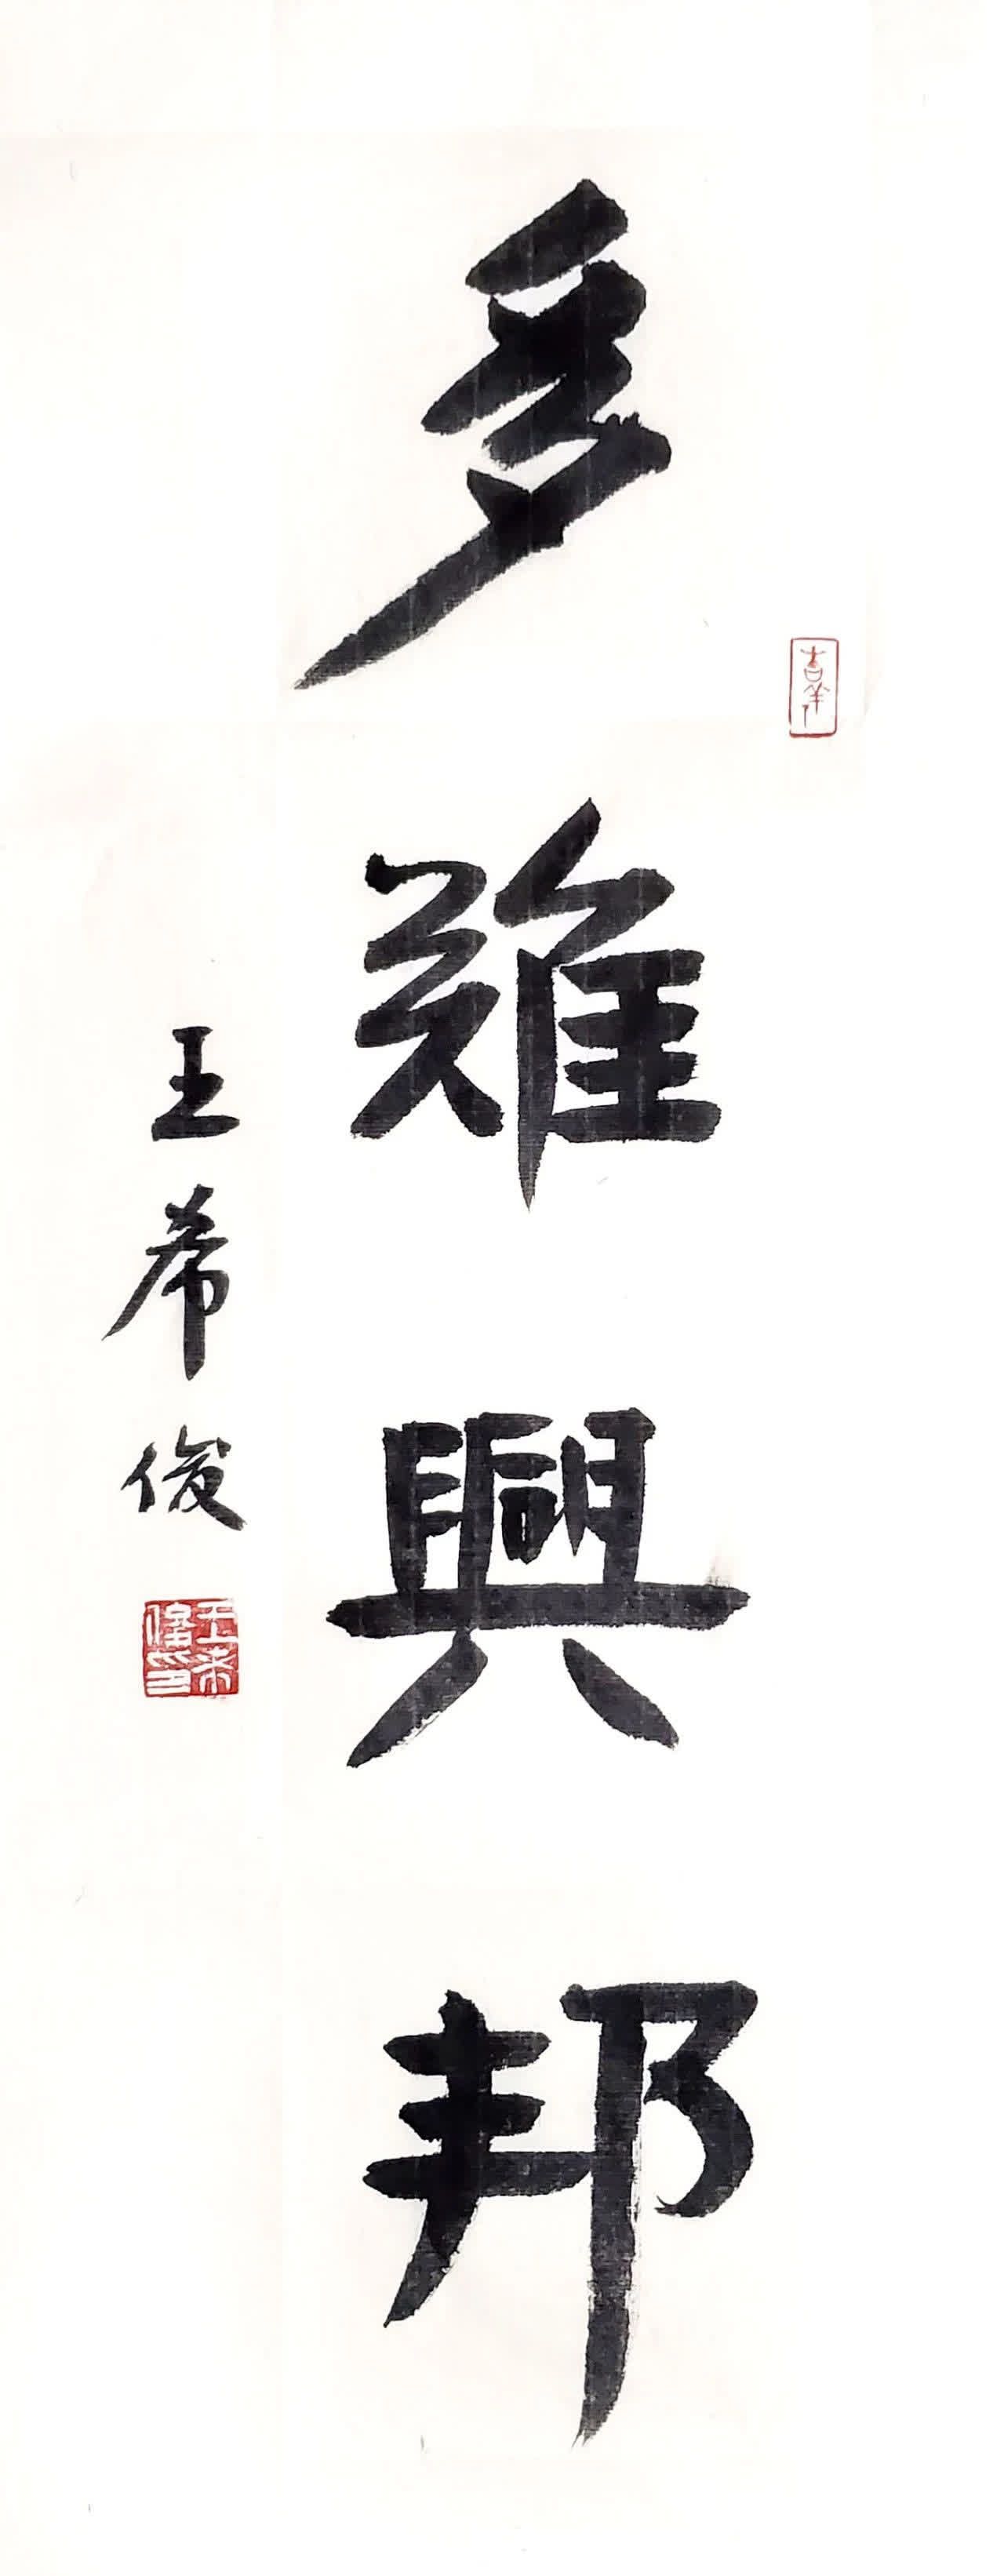 多難興邦
王希俊
吉羊
王希俊印